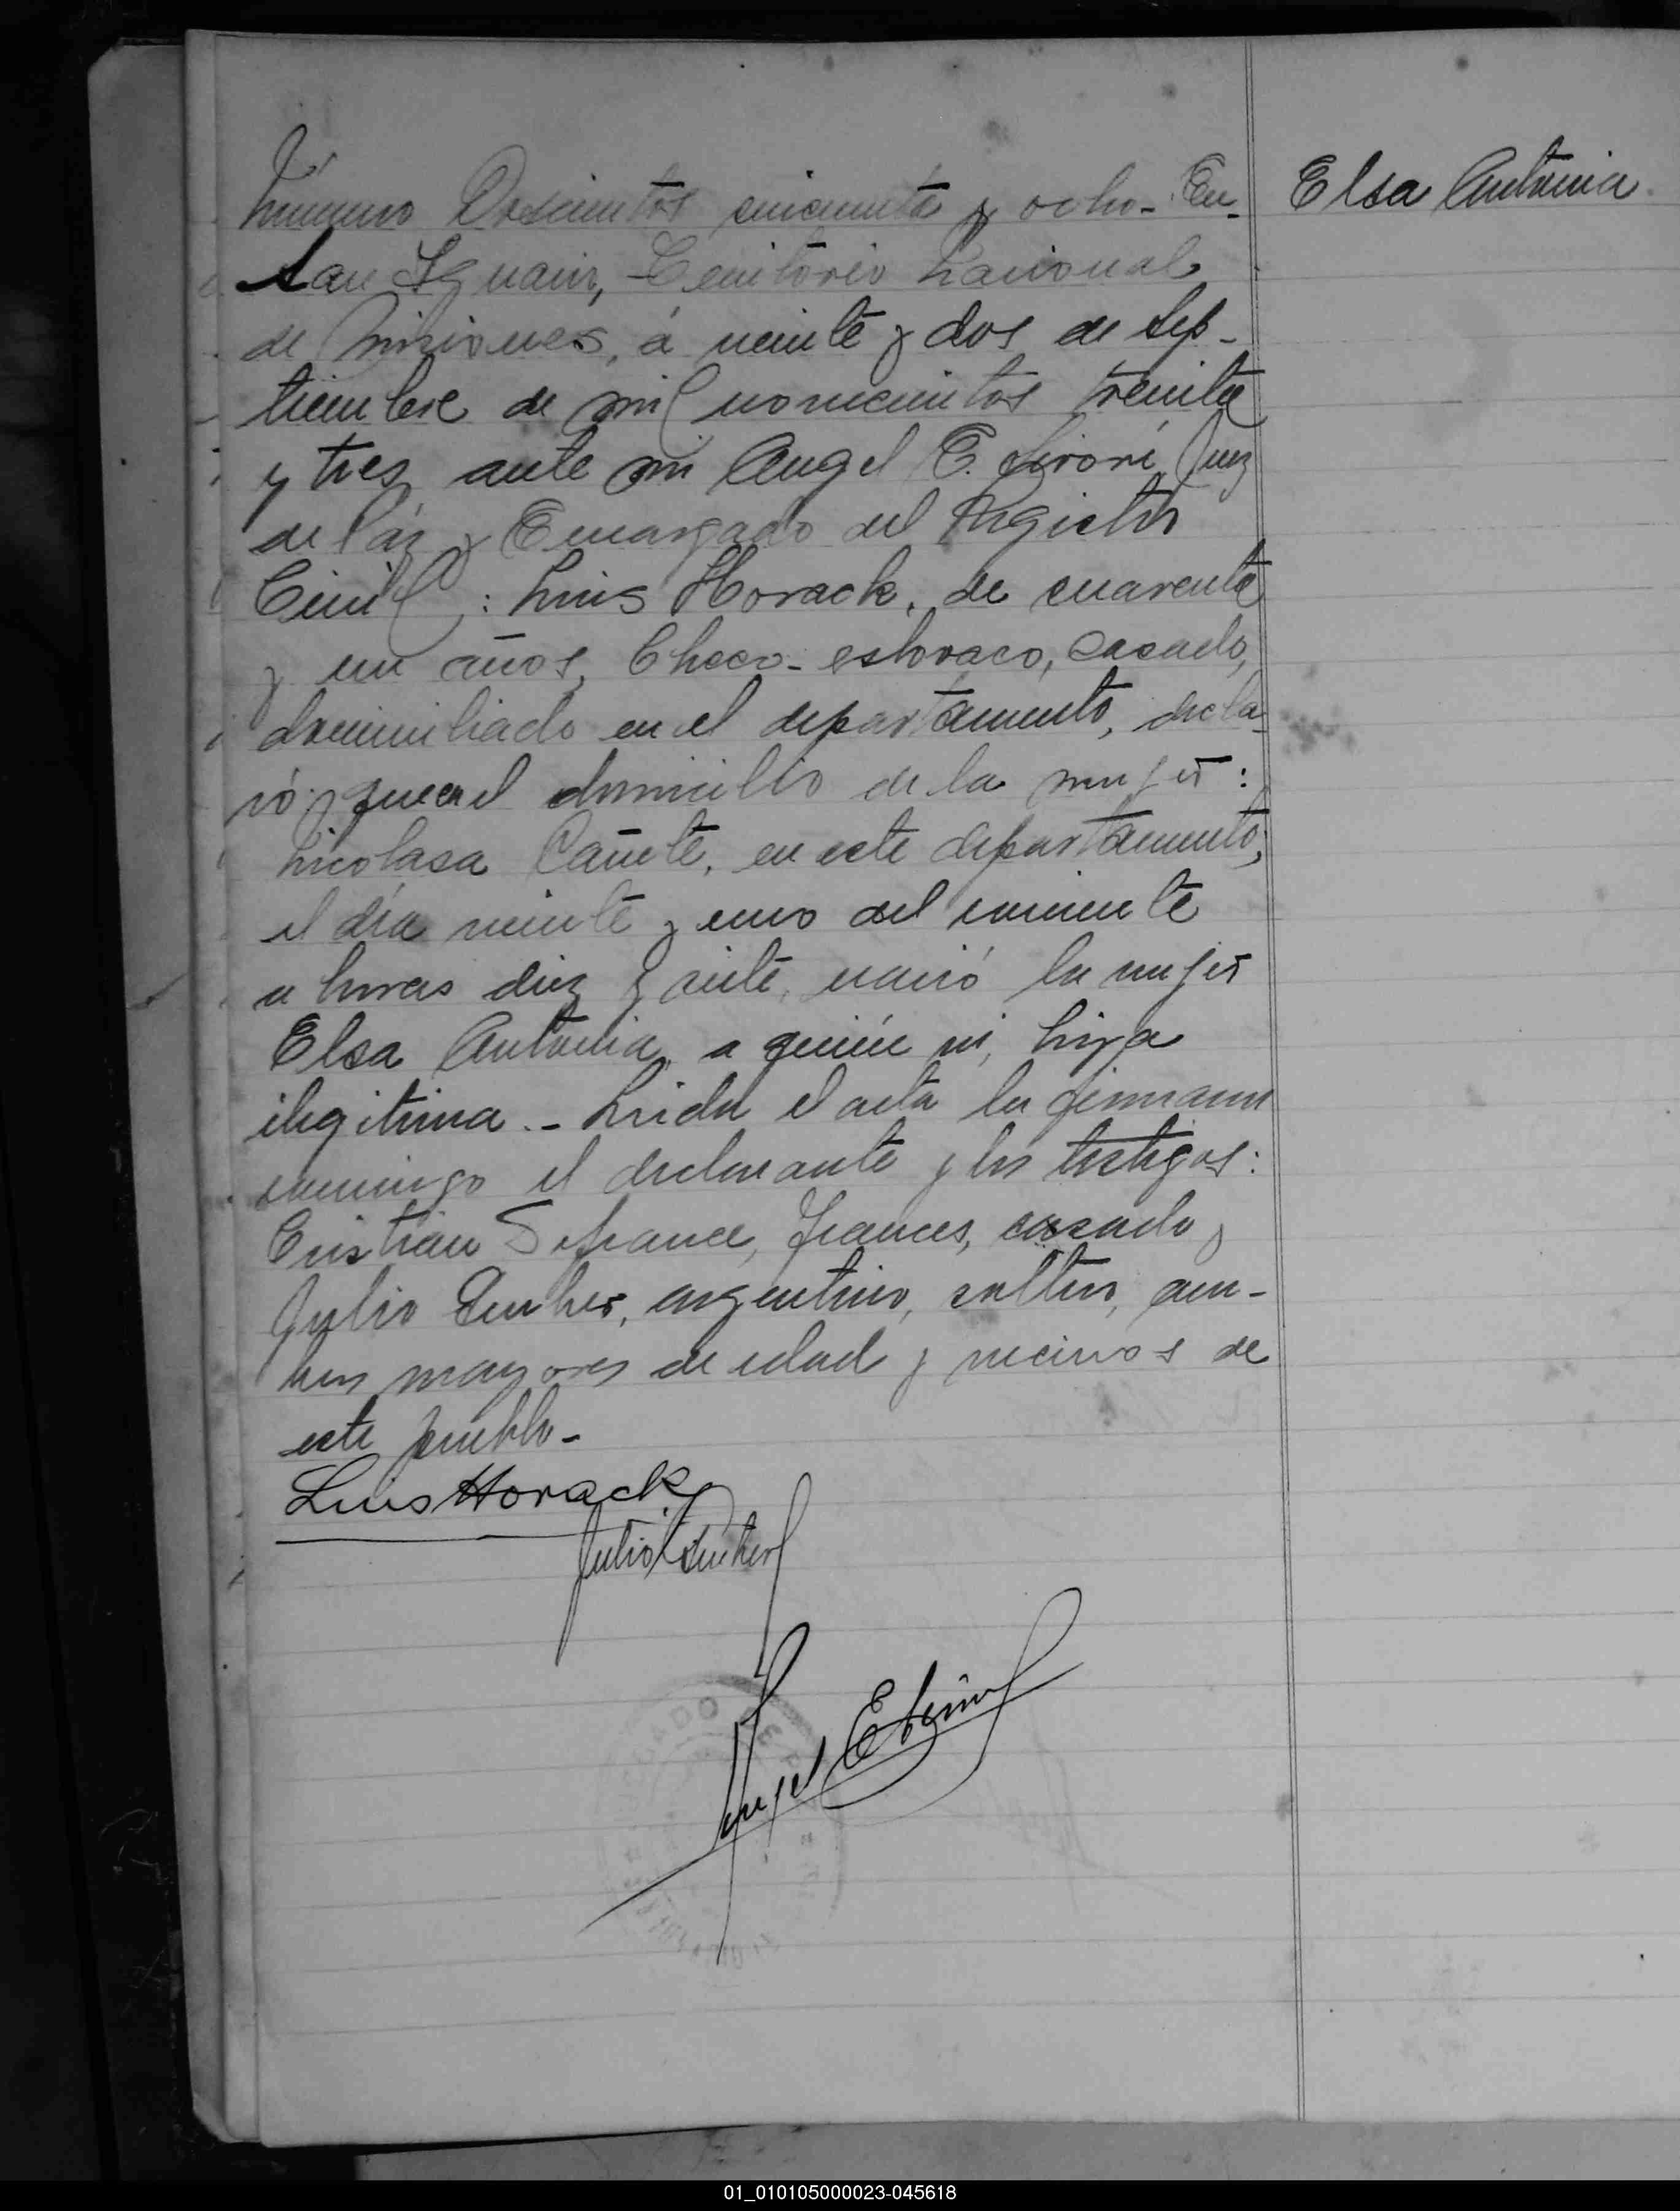 Número Doscientos cincuenta y ocho - En
Elsa Antonia
San Ignacio, Territorio Nacional
de Misiones, á veinte y dos de Sep-
tiembre de mil novecientos treinta
y tres, ante mi Angel E. Juez
de Páz y Encargado del Registro
Civil: Luis Horack, de cuarenta
y un años, Checo-eslovaco, casado,
domiciliado en el departamento, decla-
ró: que en el domicilio de la mujer:
Nicolasa Cañete, en este departamento,
el día veinte y uno del corriente
a horas diez y siete, nació la mujer
Elsa Antonia, a quién vi, hija
ilegitima.- Leida el acta la firmaron
conmigo el declarante y los testigos:
Cristian frances, casado y
Julio argentino, soltero, am-
bos mayores de edad y vecinos de
este pueblo-
Luis Horack
Julio
Angel E
JUZGADO DE P